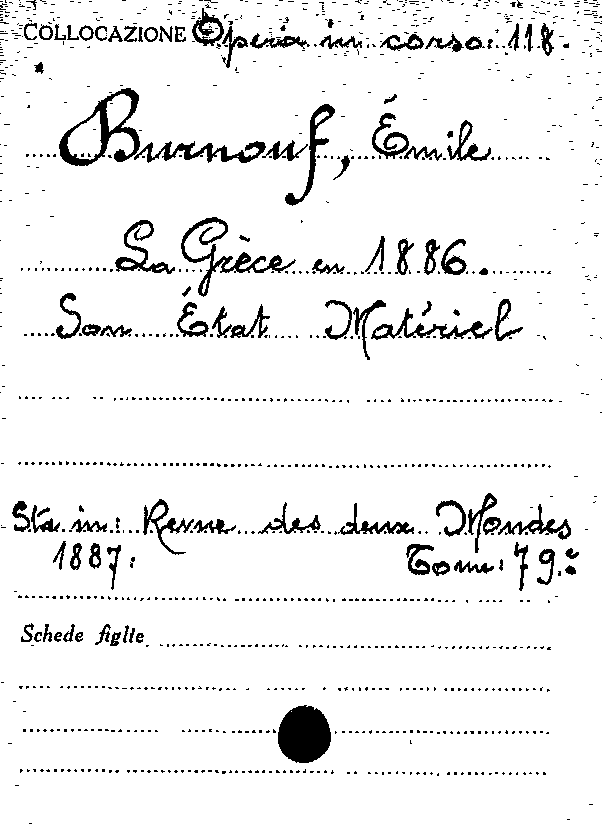 COLLOCAZIONE Opera in corso: 118.
Burnouf, Émile
La Grèce en 1886.
Son État Matériel
Sta in: Revue des deux Mondes
1887. Tome: 79.º
Schede figlie